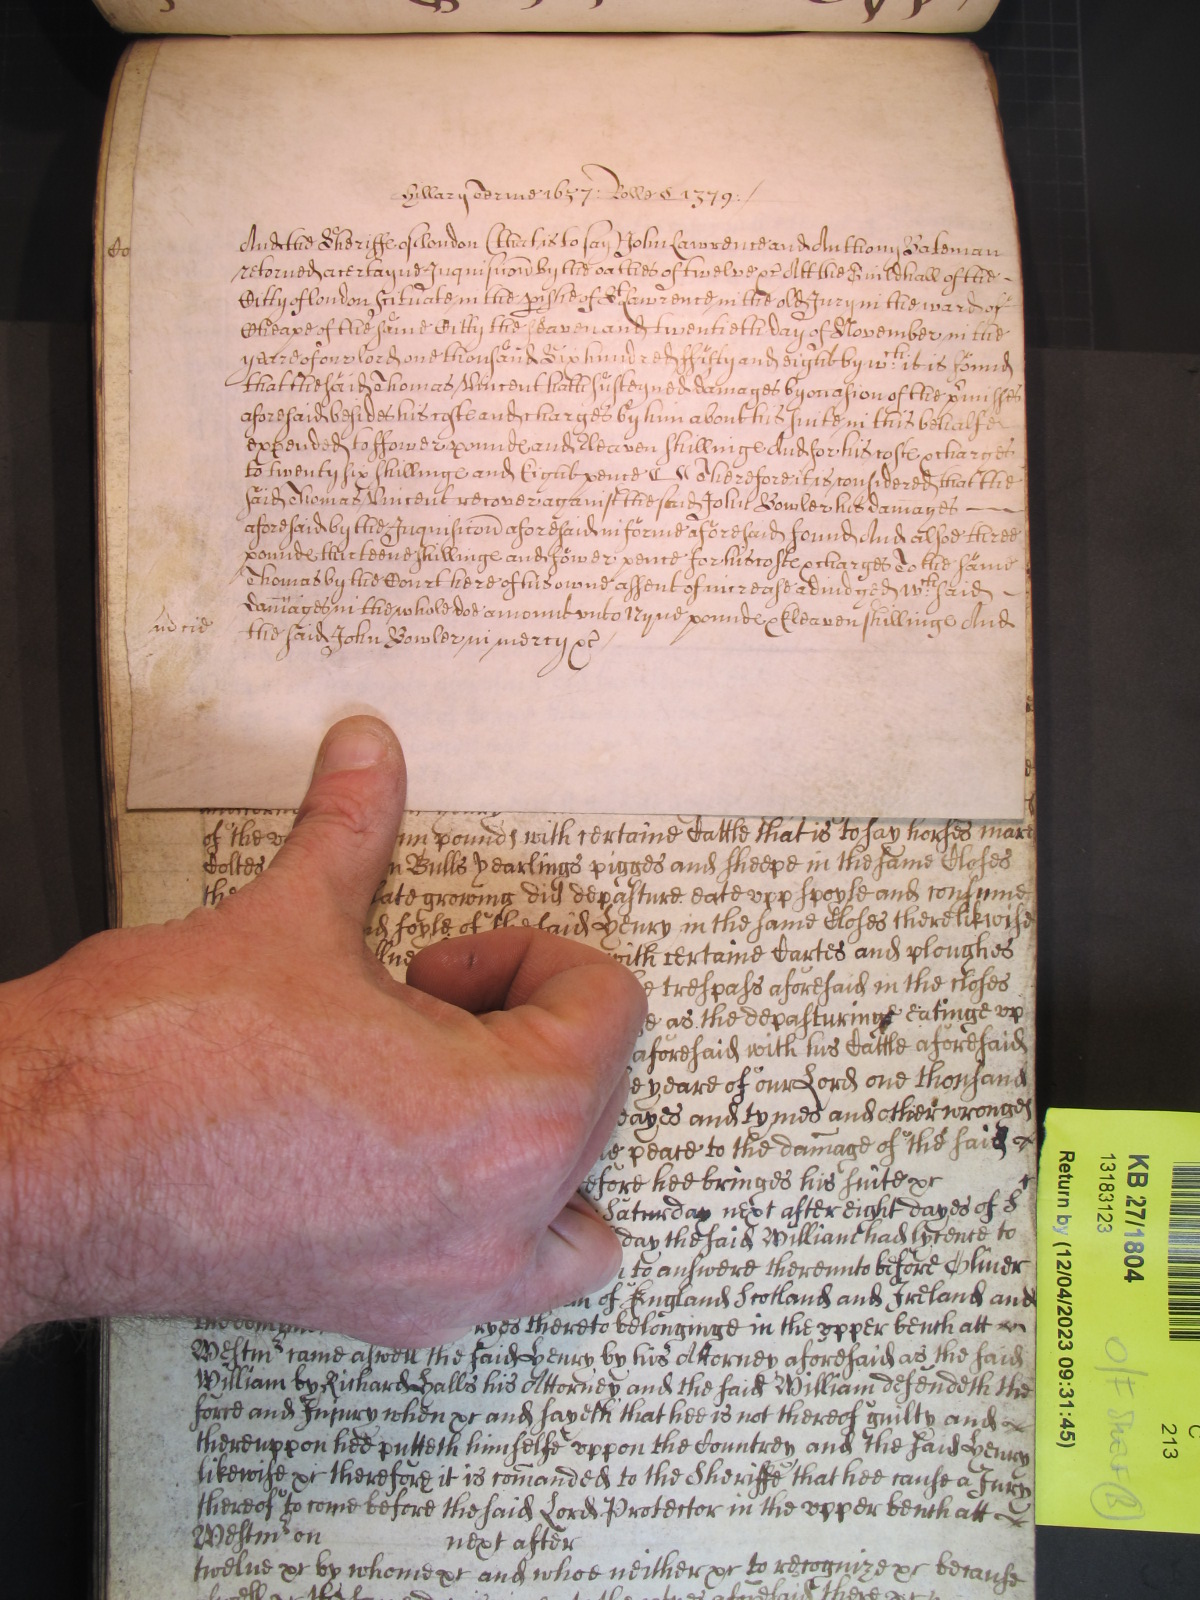 Hillary Terme 1657: Rolle C 1379:/
And the Sheriffe of London (that is to say) John Lawrence and Anthony Bateman
retorned a certayne Inquisicon by the oathes of twelve xc Att the Guildhall of the
Citty of London Scituate in the pishe of St Lawrence in the old Jury in the ward of
Cheape of the same Citty the seaven and twentieth day of November in the
yeare of our lord one thousand Six hundred ffifty and eight by wch it is found
that the said Thomas Vincent hath susteyned damages by occasion of the pmisses
aforesaid besides his costs and charges by him about his suite in this behalfe
expended to ffower pounds and Eleaven shillings And for his costs & charges
to twenty six shillings and Eight pence Therefore it is considered that the
said Thomas Vincent recover against the said John Bowler his damages
aforesaid by the Inquisicon aforesaid in forme aforesaid found And alsoe three
pounds thirteene shillings and fower pence for his costs & charges To the same
Thomas by the Court here of his owne assent of increase adiudged wch said
damages in the whole doe amount unto Nyne pounds & Eleaven shillings And
the said John Bowler in mercy xc
of the pounds with certaine Cattle that is to say horses mares
Coltes Bulls yearlings pigges and sheepe in the same Closes
late growing did depasture eate upp spoyle and consume
soyle of the said Henry in the same Closes there likewise
with certaine Cartes and ploughes
trespass aforesaid in the closes
as the depasturinge Eatinge up
aforesaid with his Cattle aforesaid
yeare of our Lord one thousand
dayes and tymes and other wronges
peace to the damage of the said
hee bringes his suite xc
Saturday next after eight dayes of S
day the said William had lycence to
to answere thereunto before Oliver
of England Scotland and Ireland and
thereto belonginge in the upper bench att
Westmr came aswell the said Henry by his Attorney aforesaid as the said
William by Richard Halls his Attorney and the said William defendeth the
force and Injury when xc and sayeth that hee is not thereof guilty and
thereuppon hee putteth himselfe uppon the Countrey and the said Henry
likewise xc therefore it is comanded to the Sheriffe that hee cause a Jury
thereof to come before the said Lord Protector in the upper bench att
Westmr on next after
twelve xc by whome xc and whoe neither xc to recognize xc because
KB 27/1804
13183123
Return by (12/04/2023 09:31:45)
C
213